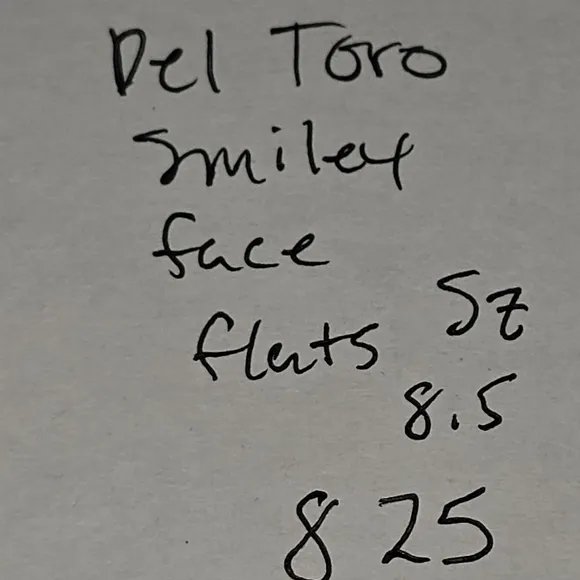 Del Toro
Smiley
face
flats Sz
8.5
8 25